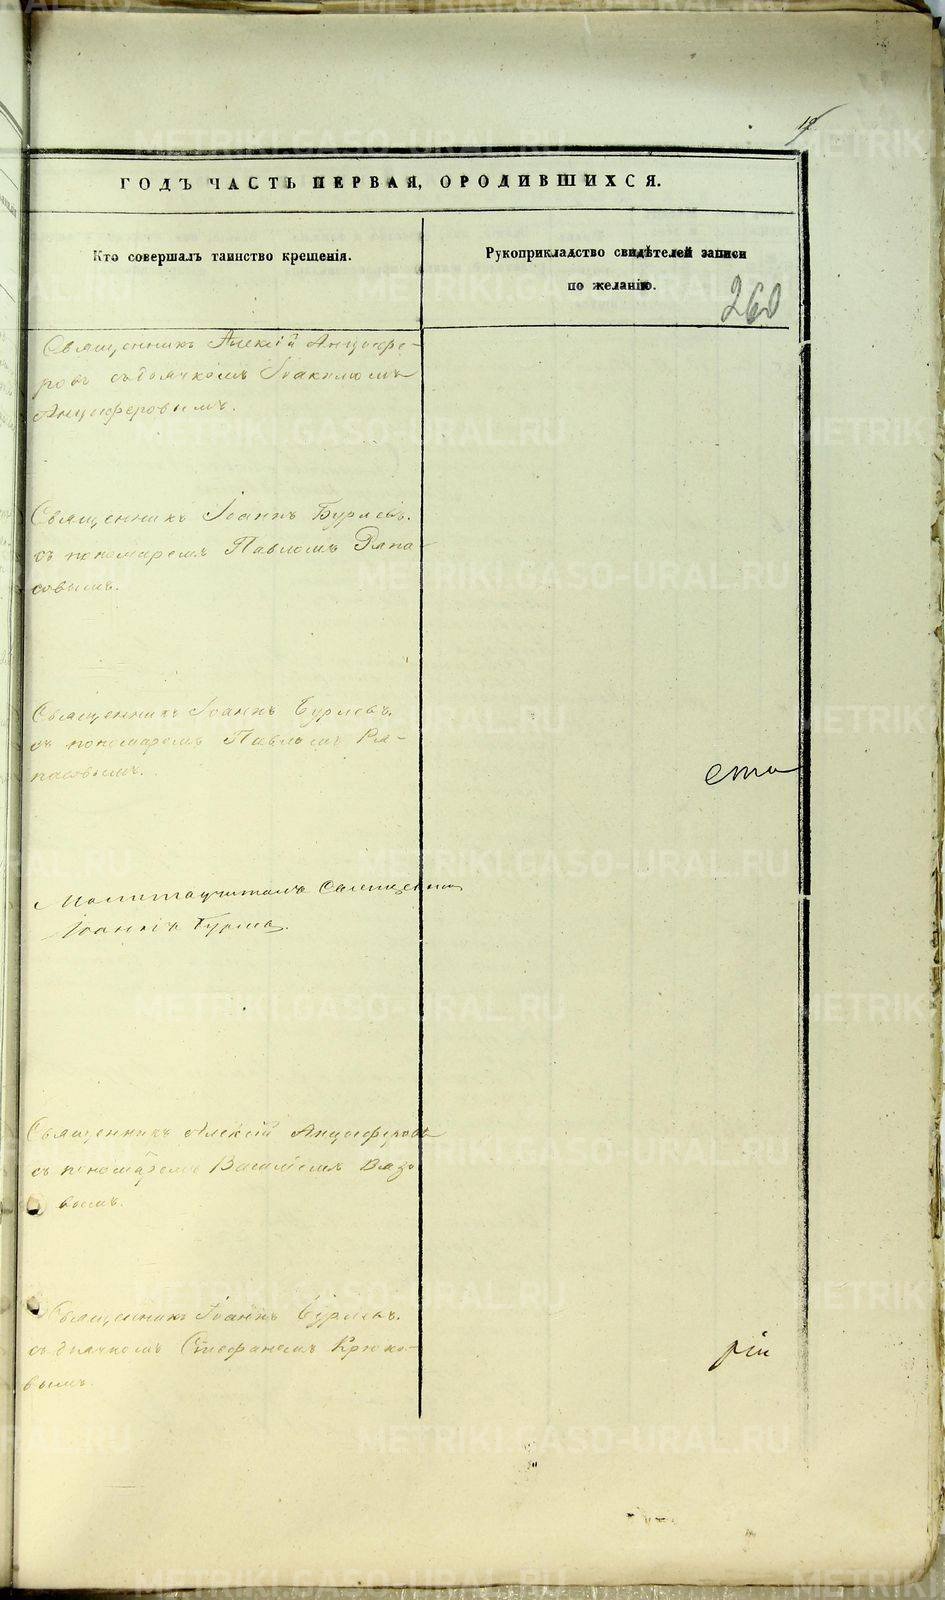 12
ГОДЪ ЧАСТЬ ПЕРВАЯ, ОРОДИВШИХСЯ.
Кто совершалъ таинство крещенія.
Рукоприкладство свидѣтелей записи
по желанію.
260
Священникъ Алексій Анцыфе-
ровъ съ дьячкомъ Іоакимомъ
Анцыферовымъ.
Священникъ Іоаннъ Бурлевъ.
съ пономаремъ Павломъ
совымъ.
Священникъ Іоаннъ Бурлевъ.
съ пономаремъ Павломъ
ста
Священник
Іоанн
Священникъ Алексій Анцыферовъ
съ пономаремъ Василіемъ Вязо
вымъ.
Священникъ Іоаннъ Бурлевъ.
съ дьячкомъ Стефаномъ Крюко-
вымъ.
рій
METRIKI.GASO-URAL.RU